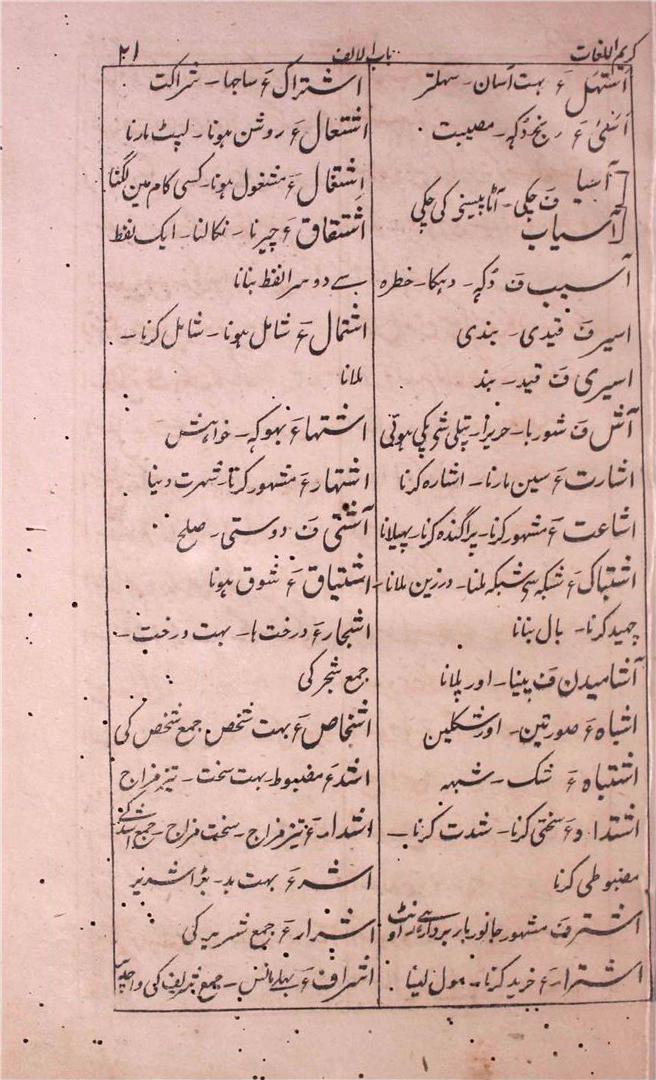 کریم اللغات باب الالف ۲۱
اسہل ع بہت آسان۔ سہلتر
اسیٰ ع رنج دکہہ۔ مصیبت
آسیا
آسیاب ف چکی۔ آٹا پیسنے کی چکی
آسیب ف دکہہ۔ دہکا۔ خطرہ
اسیر ف قیدی۔ بندی
اسیری ف قید۔ بند
آش ف شوربا۔ حریرا۔ پتلی شی پکی ہوئی
اشارت ع سین مارنا۔ اشارہ کرنا
اشاعت ع مشہور کرنا۔ پراگندہ کرنا۔ پہیلانا
اشتباک ع شبکہ سی شبکہ ملنا۔ درزین ملانا۔
چہید کرنا۔ بال بنانا
آشامیدن ف پینا۔ اور پلانا
اشباہ ع صورتین۔ اور شکلین
اشتباہ ع شک۔ شبہہ
اشتداد ع سختی کرنا۔ شدت کرنا۔
مضبوطی کرنا
اشتر ف مشہور جانور باربردار ہے اونٹ
اشتراء ع خرید کرنا۔ مول لینا
اشتراک ع ساجہا۔ شراکت
اشتعال ع روشن ہونا۔ لپٹ مارنا
اشتغال ع مشغول ہونا۔ کسی کام مین لگنا
اشتقاق ع چیرنا۔ نکالنا۔ ایک لفظ
سے دوسرا لفظ بنانا
اشتمال ع شامل ہونا۔ شامل کرنا۔
ملانا
اشتہا ع بہوکہہ۔ خواہش
اشتہار ع مشہور کرنا۔ شہرت دینا
آشتی ف دوستی۔ صلح
اشتیاق ع شوق ہونا
اشجار ع درخت ہا۔ بہت درخت۔
جمع شجر کی
اشخاص ع بہت شخص جمع شخص کی
اشد ع مضبوط۔ بہت سخت۔ تیز مزاج
اشداء ع تیز مزاج۔ سخت مزاج۔ جمع
اشر ع بہت بد۔ بڑا شریر
اشرار ع جمع شریر کی
اشراف ع بہلے مانس۔ جمع شریف کی